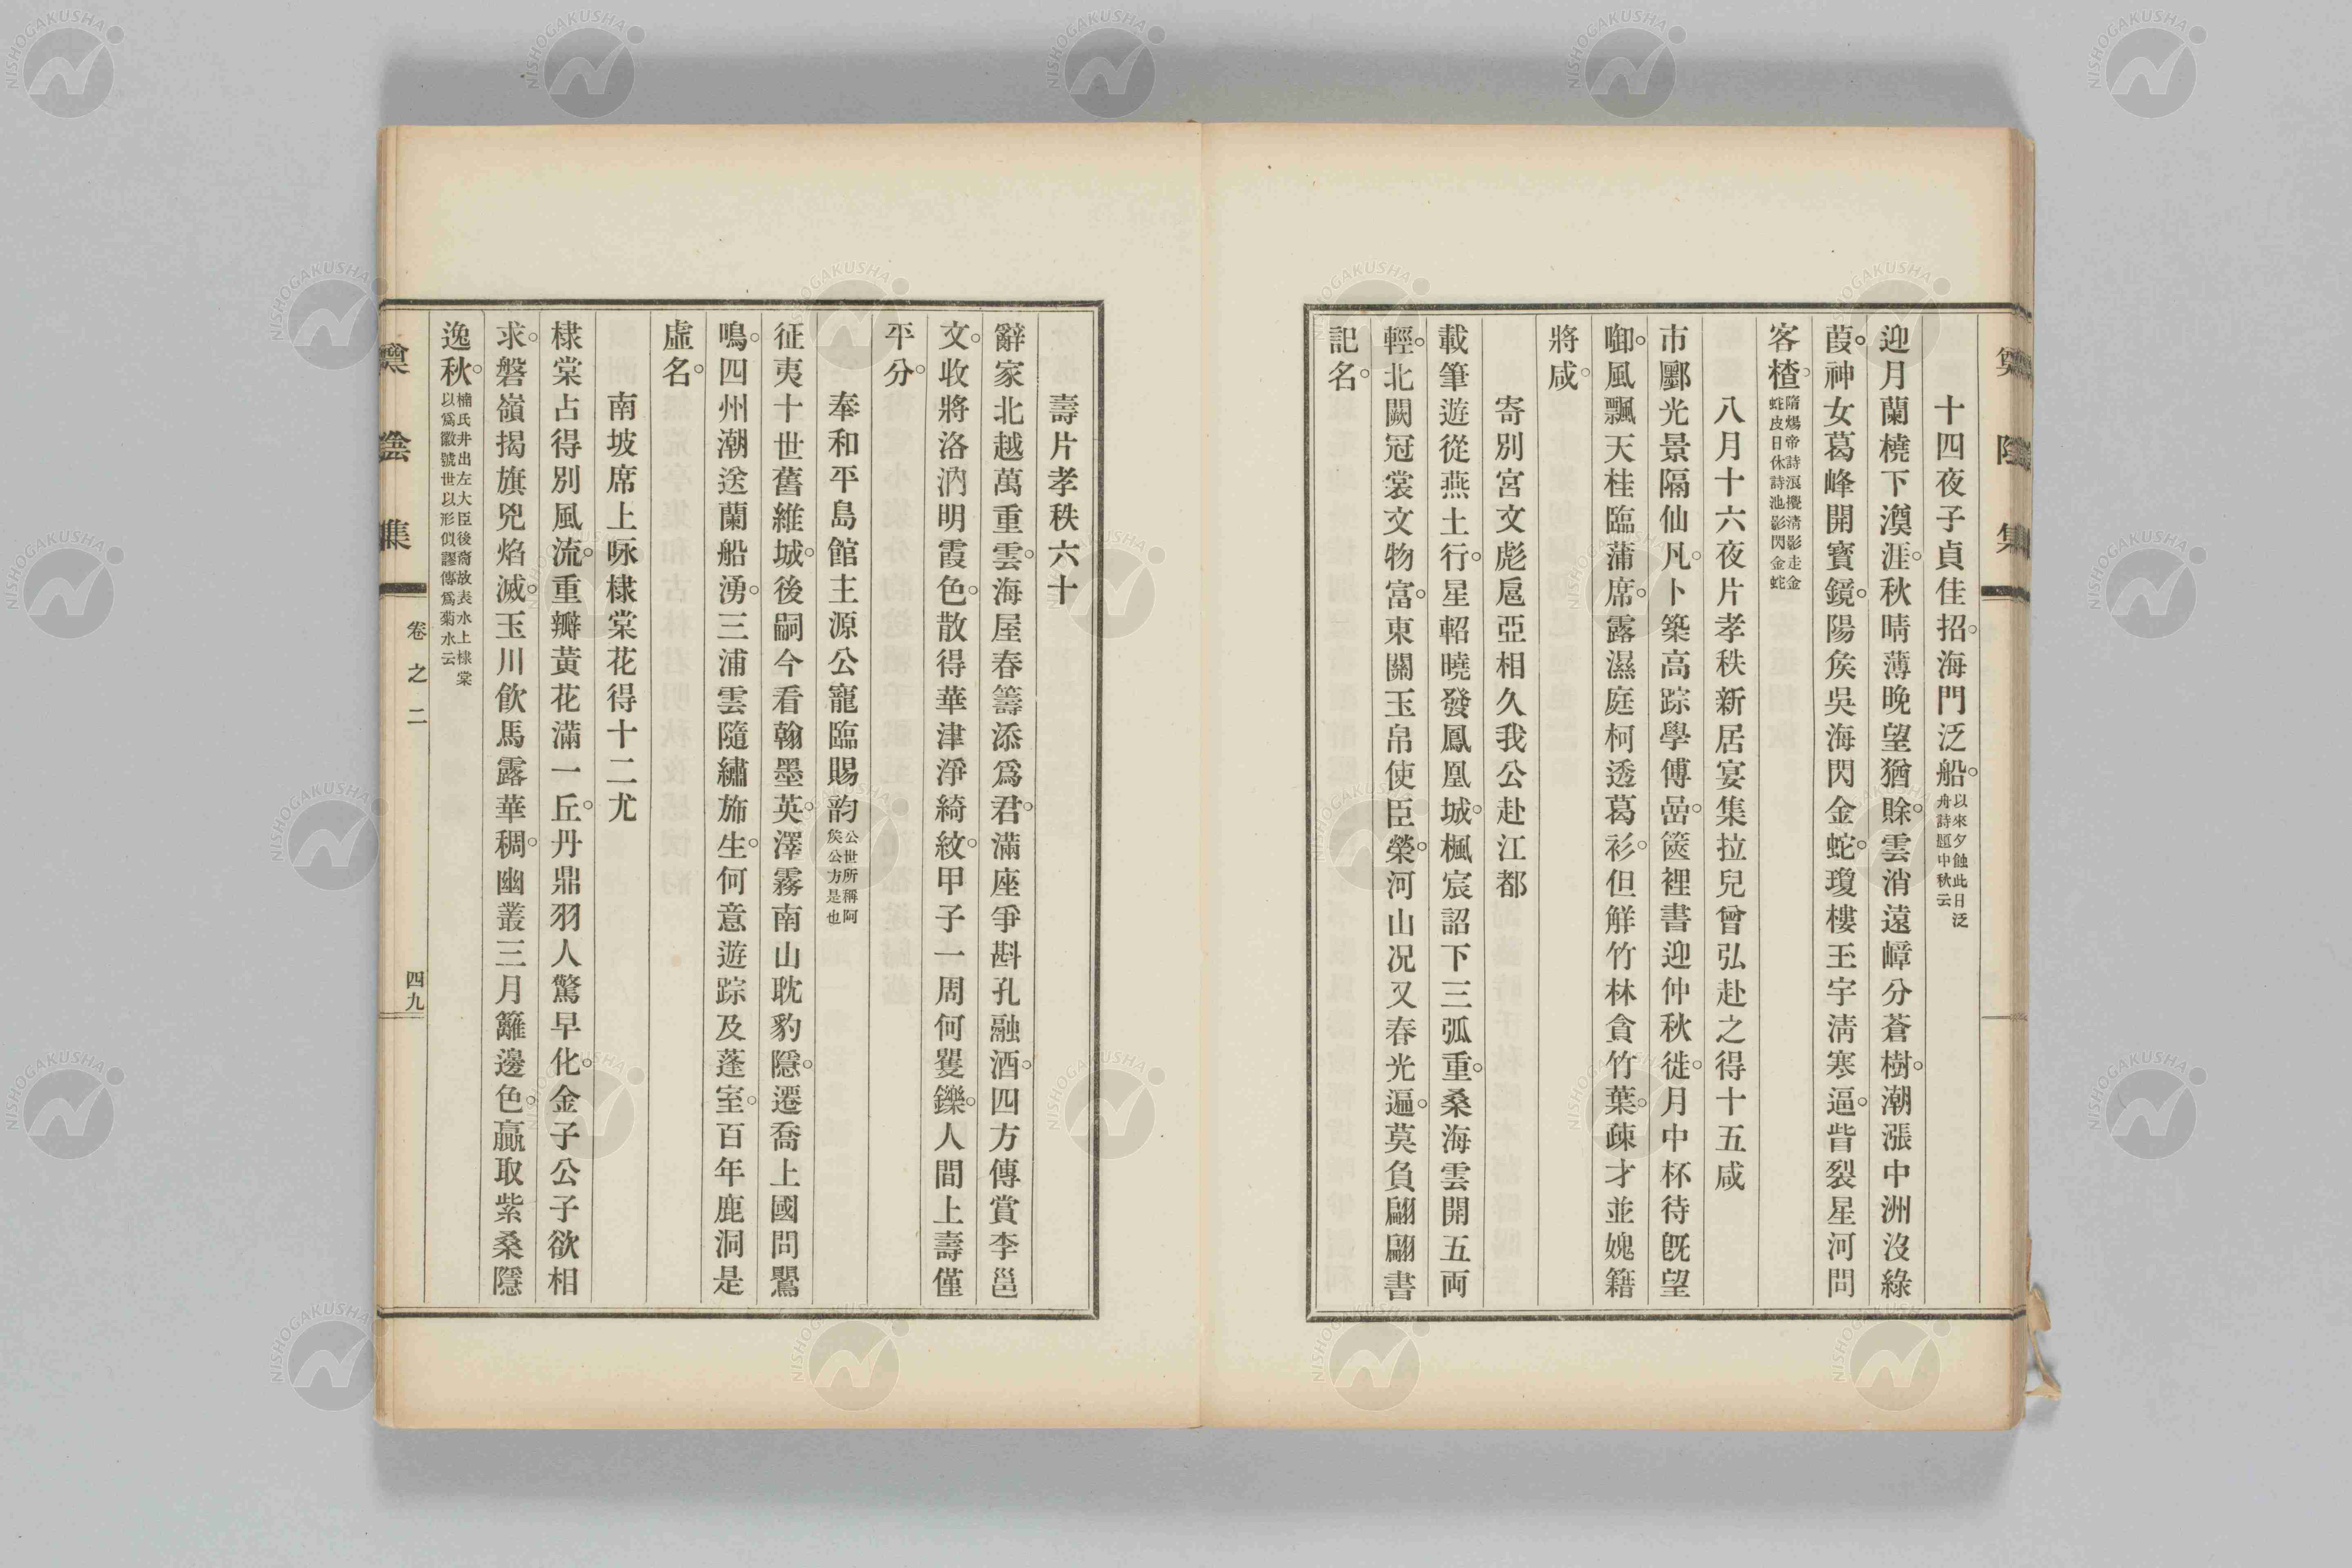 十四夜子貞佳招。海門泛船。以來夕蝕此日泛舟詩題中秋云
迎月蘭橈下澳涯。秋晴薄晚望猶賖。雲消遠嶂分蒼樹。潮漲中洲沒綠
葭。神女葛峰開寶鏡。陽矦吳海閃金蛇。瓊樓玉宇淸寒逼。眥裂星河問
客楂。隋煬帝詩浪攪淸影走金蛇皮日休詩池影閃金蛇
八月十六夜片孝秩新居宴集拉兒曾弘赴之得十五咸
市郾光景隔仙凡。卜築高踪學傅嵒。篋裡書迎仲秋徙。月中杯待旣望
啣。風飄天桂臨蒲席。露濕庭柯透葛衫。但觧竹林貪竹葉。疎才並媿籍
將咸。
寄別宮文彪扈亞相久我公赴江都
載筆遊從燕土行。星軺曉發鳳凰城。楓宸詔下三弧重。桑海雲開五両
輕。北闕冠裳文物富。東關玉帛使臣榮。河山况又春光遍。莫負翩翩書
記名。
壽片孝秩六十
辭家北越萬重雲。海屋春籌添爲君。滿座爭斟孔融酒。四方傳賞李邕
文。收將洛汭明霞色。散得華津淨綺紋。甲子一周何矍鑠。人間上壽僅
平分。
奉和平島館主源公寵臨賜韵公世所稱阿矦公方是也
征夷十世舊維城。後嗣今看翰墨英。澤霧南山耽豹隱。遷喬上國問鸎
鳴。四州潮送蘭船湧。三浦雲隨繡斾生。何意遊踪及蓬室。百年鹿洞是
虛名。
南坡席上咏棣棠花得十二尤
棣棠占得別風流。重瓣黃花滿一丘。丹鼎羽人驚早化。金子公子欲相
求。磐嶺揭旗兇焰滅。玉川飮馬露華稠。幽叢三月籬邊色。贏取紫桑隱
逸秋。楠氏井出左大臣後裔故表水上棣棠以爲徽號世以形似謬傳爲菊水云
卷之二
四九